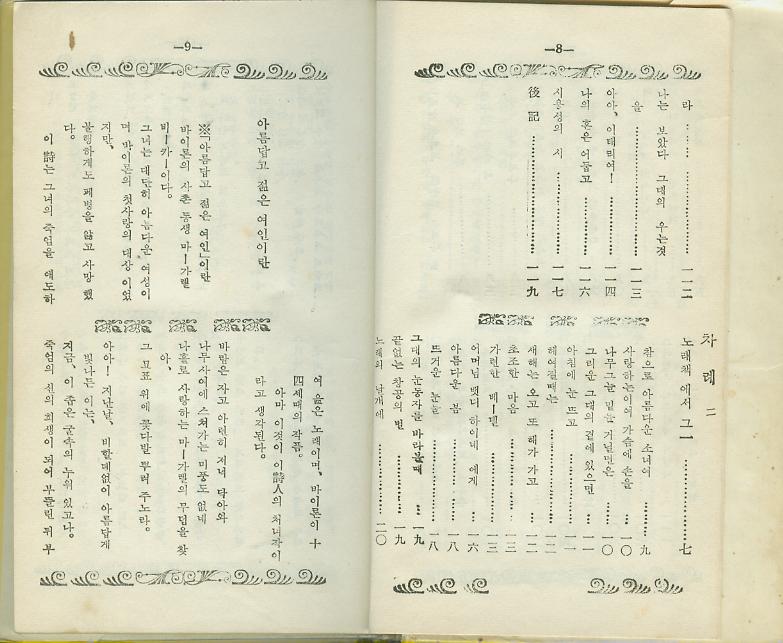 —8—
라 …… 一一二
나는 보았다 그대의 우는것
을 …… 一一三
아아, 이태리여! …… 一一四
나의 혼은 어둡고 …… 一一六
시용성의 시 …… 一一七
後記 …… 一一九
차례 二
노래책에서 그一 …… 七
참으로 아름다운 소녀여 …… 九
사랑하는이여 가슴에 손을 … 一〇
나무그늘 밑을 거닐면은 … 一〇
그리운 그대의 곁에 있으면 … 一一
아침에 눈 뜨고 …… 一一
헤여질때는 …… 一二
새해는 오고 또 해가 가고 … 一二
초조한 마음 …… 一三
가련한 페ー텔 …… 一三
어머님 벳더 하이네 에게 … 一六
아름다운 봄 …… 一八
뜨거운 눈물 …… 一八
그대의 눈동자를 바라볼때 … 一九
끝없는 창공의 별 …… 一九
노래의 날개에 …… 二〇
—9—
아름답고 젊은 여인이란
※「아름답고 젊은 여인」이란
바이론의 사촌 동생 마ー가렡
비ー카ー이다.
그녀는 대단히 아름다운 여성이
며 바이론의 첫사랑의 대상이었
지만,
불행하게도 폐병을 앓고 사망했
다.
이 詩는 그녀의 죽엄을 애도하
여 읊은 노래이며, 바이론이 十
四세때의 작품.
아마 이것이 이 詩人의 처녀작이
라고 생각된다.
바람은 자고 아련히 저녁 닥아와
나무 사이에 스쳐가는 미풍도 없네
나홀로 사랑하는 마ー가렡의 무덤을 찾
아,
그 묘표 위에 꽃다발 뿌려 주노라.
아아! 지난날, 비할데없이 아름답게
빛나든 이는,
지금, 이 좁은 굴속의 누워 있고나.
죽엄의 신의 희생이 되어 부뜰린 뒤 부